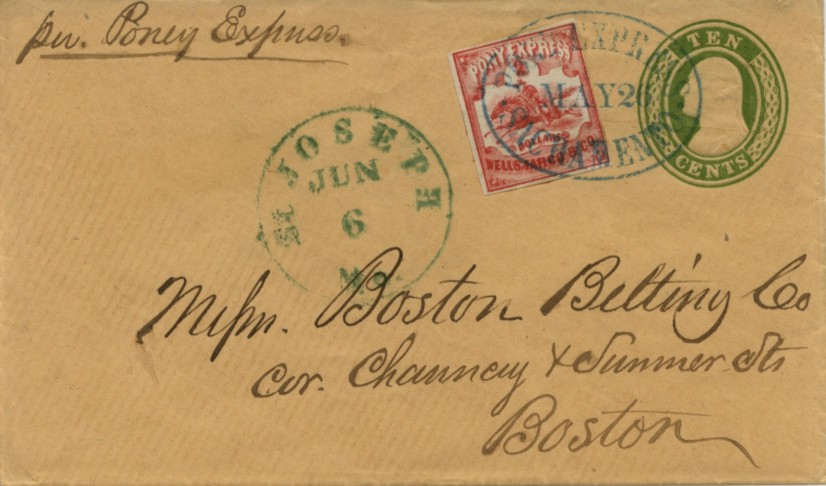 per. Poney Express.
PONY EXPRESS
DOLLARS
WELLS, FARGO & CO.
PONY EXPRESS
MAY 26
SACRAMENTO
TEN
CENTS
St JOSEPH
JUN
6
Mo.
Messrs. Boston Belting Co
cor. Chauncey & Summer Sts
Boston